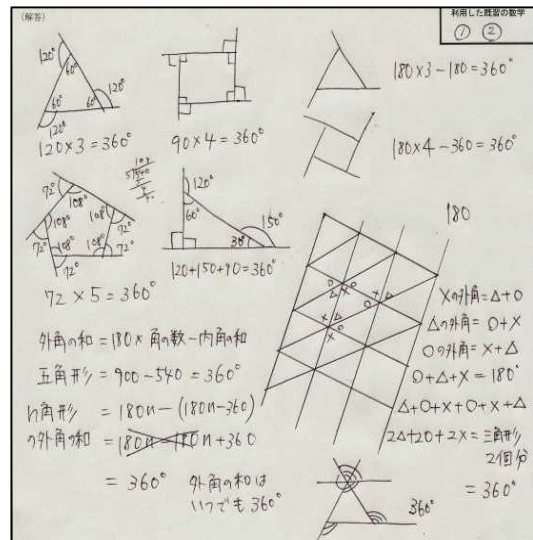 (解答)
利用した既習の数学
① ②
120°
60°
60°
60°
120°
120°
120×3=360°
90×4=360°
180×3-180=360°
180×4-360=360°
72°
108°
108°
72°
72°
108°
108°
108°
72°
72°
72×5=360°
120°
60°
30°
150°
120+150+90=360°
180
×の外角=△+○
△の外角=○+×
○の外角=×+△
○+△+×=180°
△+○+×+○+×+△
2△+2○+2×=三角形
2個分
=360°
外角の和=180×角の数-内角の和
五角形=900-540=360°
n角形=180n-(180n-360)
の外角の和=180n-180n+360
=360°
外角の和は
いつでも360°
360°